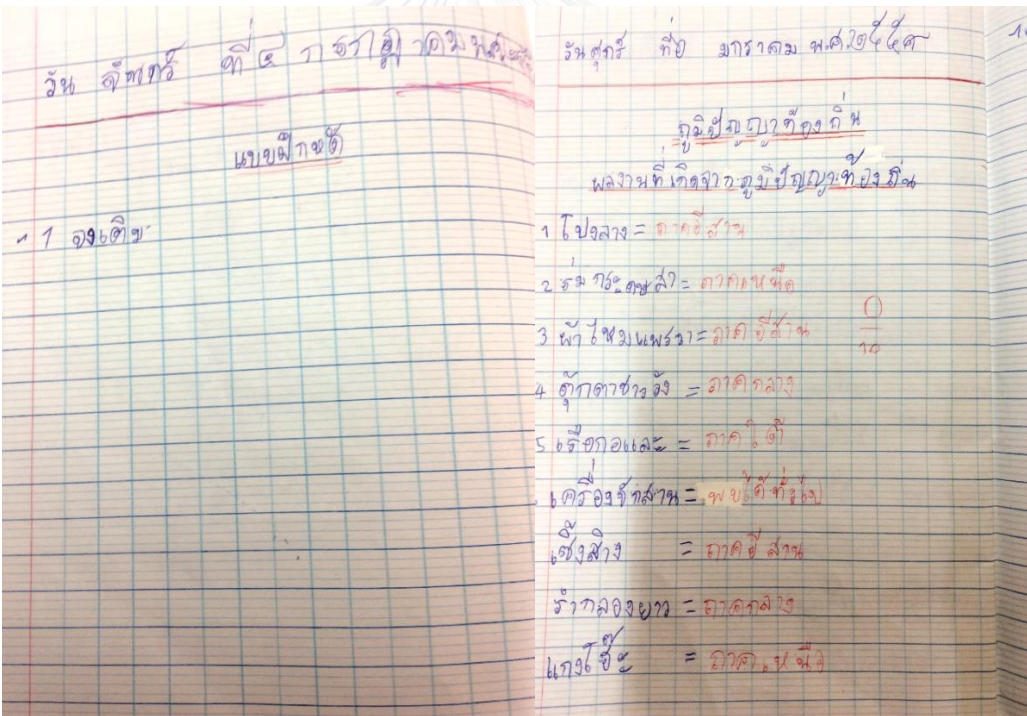 วัน จันทร์ ที่ ๔ กรกฎาคม
แบบฝึกหัด
1
วันศุกร์ ที่ มกราคม พ.ศ.
ภูมิปัญญาท้องถิ่น
ผลงานที่เกิดจากภูมิปัญญาท้องถิ่น
1 โปงลาง = ภาคอีสาน
2 ร่มกระดาษสา = ภาคเหนือ
3 ผ้าไหมแพรวา = ภาคอีสาน
10
4 ตุ๊กตาชาววัง = ภาคกลาง
5 เรือกอและ = ภาคใต้
เครื่องจักสาน = พบได้ทั่วไป
เซิ้งสวิง = ภาคอีสาน
รำกลองยาว = ภาคกลาง
แกงโฮ๊ะ = ภาคเหนือ